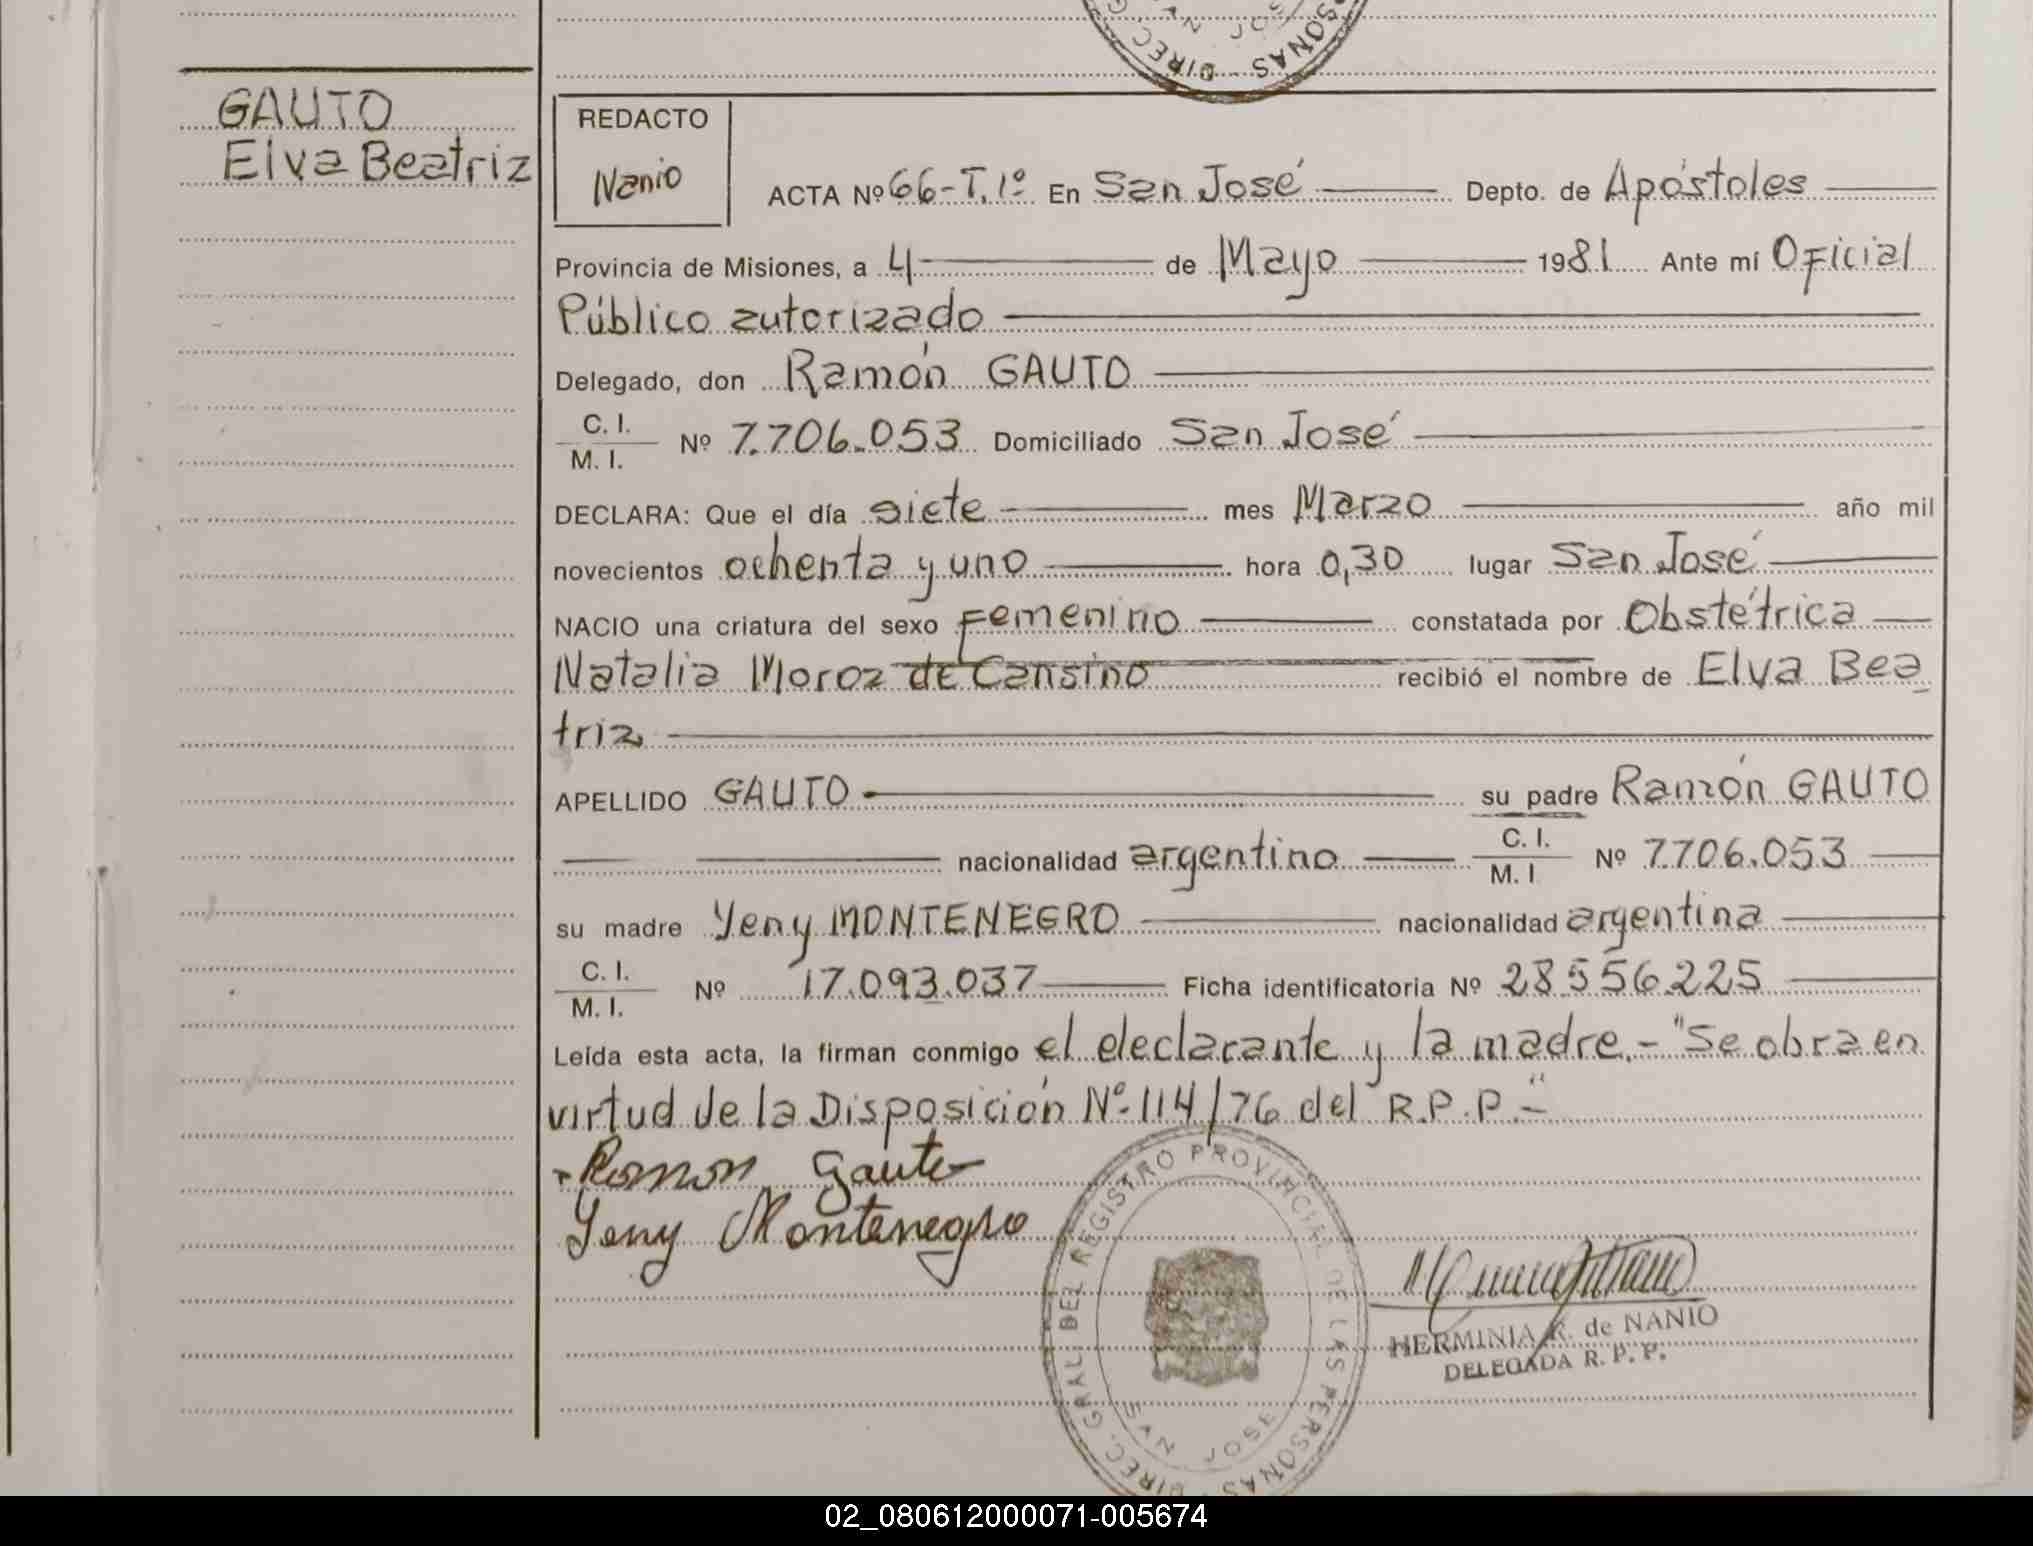 GAUTO
Elva Beatriz
REDACTO
Nanio
ACTA Nº 66-T.1º En San José Depto. de Apóstoles
Provincia de Misiones, a 4 de Mayo 1981 Ante mí Oficial
Público autorizado
Delegado, don Ramón GAUTO
C. I.
M. I. Nº 7.706.053 Domiciliado San José
DECLARA: Que el día siete mes Marzo año mil
novecientos ochenta y uno hora 0,30 lugar San José
NACIO una criatura del sexo Femenino constatada por Obstétrica
Natalia Moroz de Cansino recibió el nombre de Elva Bea
triz
APELLIDO GAUTO su padre Ramón GAUTO
nacionalidad argentino C. I.
M. I Nº 7.706.053
su madre Yeny MONTENEGRO nacionalidad argentina
C. I.
M. I. Nº 17.093.037 Ficha identificatoria Nº 28.556.225
Leída esta acta, la firman conmigo el declarante y la madre.- "Se obra en
virtud de la Disposición Nº 114/76 del R.P.P.-"
Ramon Gauto
Yeny Montenegro
DIREC. GRAL. DEL REGISTRO PROVINCIAL DE LAS PERSONAS
SAN JOSE
HERMINIA R. de NANIO
DELEGADA R. P. P.
02_080612000071-005674